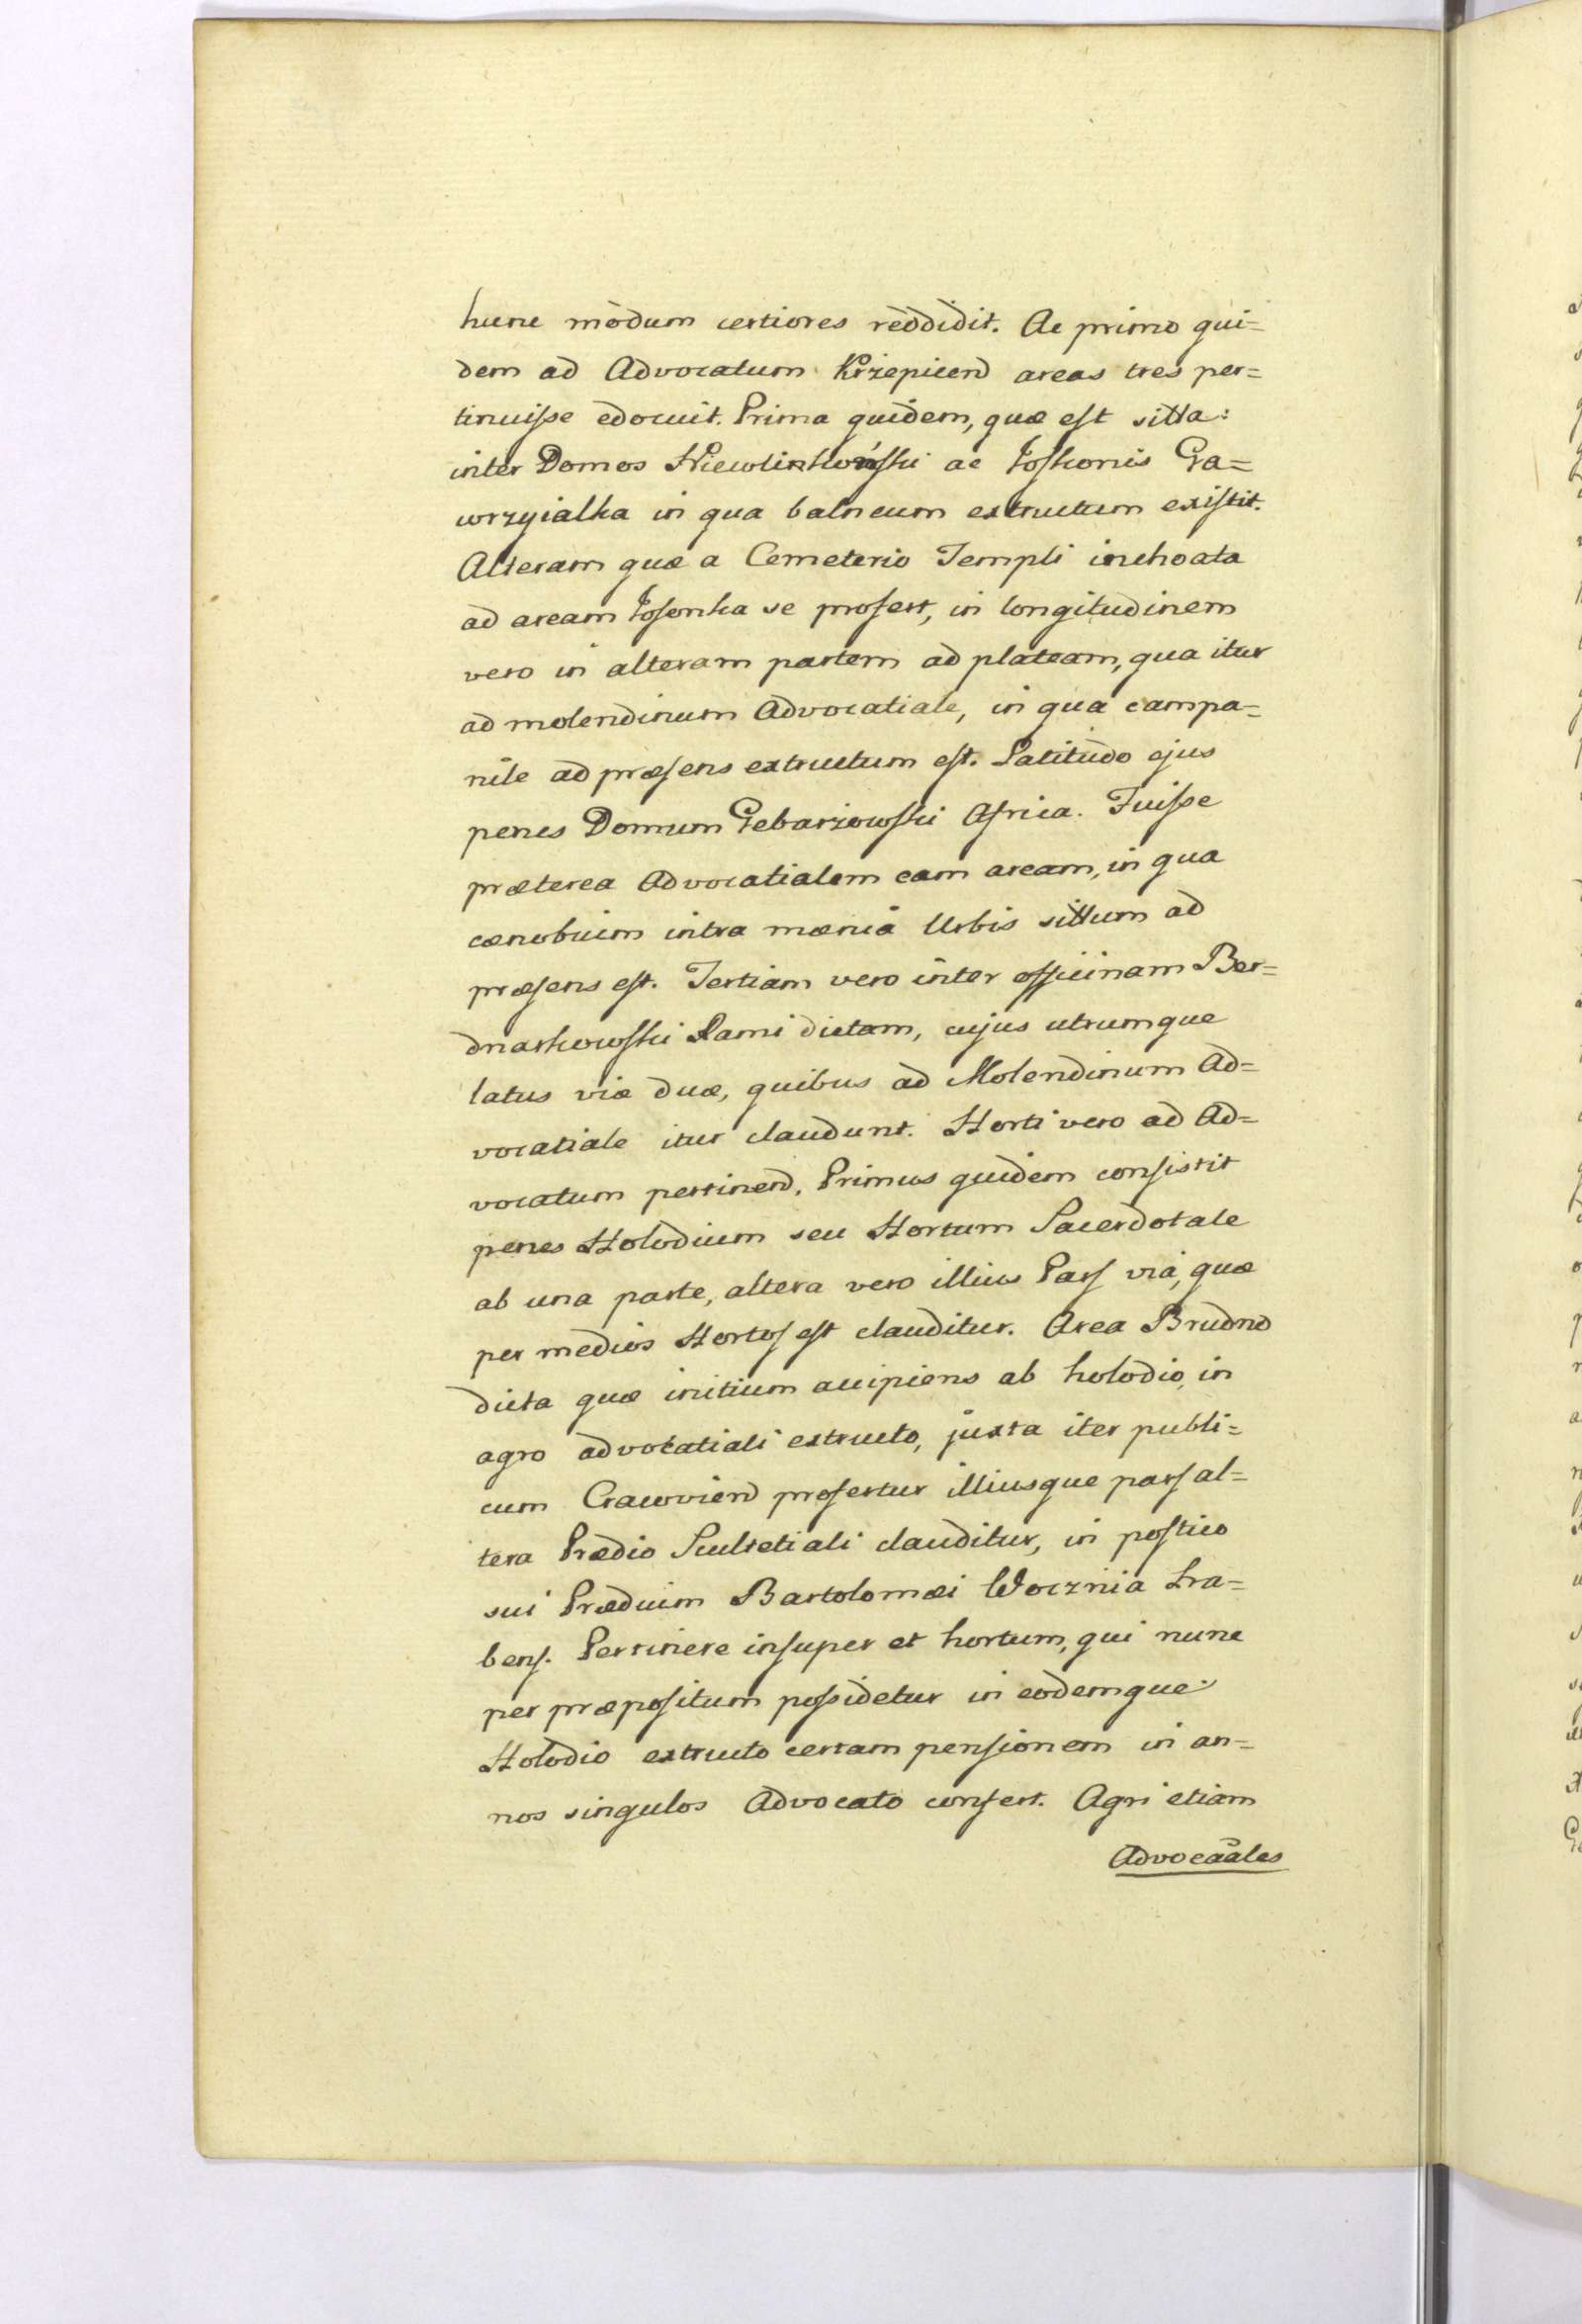 hunc modum certiores reddidit. Ac primo qui=
dem ad Advocatum Krzepicen̄ areas tres per=
tinuiſse edocuit. Prima quidem, quæ eſt sitta:
inter Domos Niewlinkońſki ac Joſkonis Ga=
wrzyialka in qua balneum extructum exiſtit.
Alteram quæ a Cemeterio Templi inchoata
ad aream Joſonka se profert, in longitudinem
vero in alteram partem ad plateam, qua itur
ad molendinum Advocatiale, in qua campa=
nile ad præſens extructum eſt. Latitudo ejus
penes Domum Gebarzowſki Africa. Fuiſse
præterea Advocatialem eam aream, in qua
cænobium intra mænia Urbis sittum ad
præſens eſt. Tertiam vero inter officinam Ber=
dnarkowſki Lami dictam, cujus utrumque
latus viæ duæ, quibus ad Molendinum Ad=
vocatiale itur claudunt. Horti vero ad Ad=
vocatum pertinen̄. Primus quidem conſistit
penes Holodium seu Hortum Sacerdotale
ab una parte, altera vero illius Parſ via, quæ
per medios Hortoſ eſt clauditur. Area Brudno
dicta quæ initium accipiens ab holodio, in
agro advocatiali extructo, juxta iter publi=
cum Cracovien̄ profertur illiusque parſ al=
tera Prædio Scultetiali clauditur, in poſtico
sui Prædium Bartolomæi Woźnia
benſ. Pertinere inſuper et hortum, qui nunc
per præpoſitum poſsidetur in eodemque
Holodio extructo certam penſionem in an=
nos singulos Advocato confert. Agri etiam
Advocāales